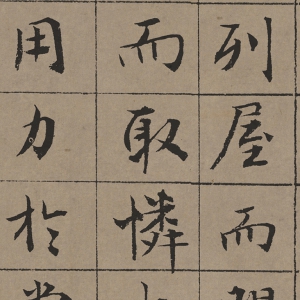 列屋而
而取憐
用力於